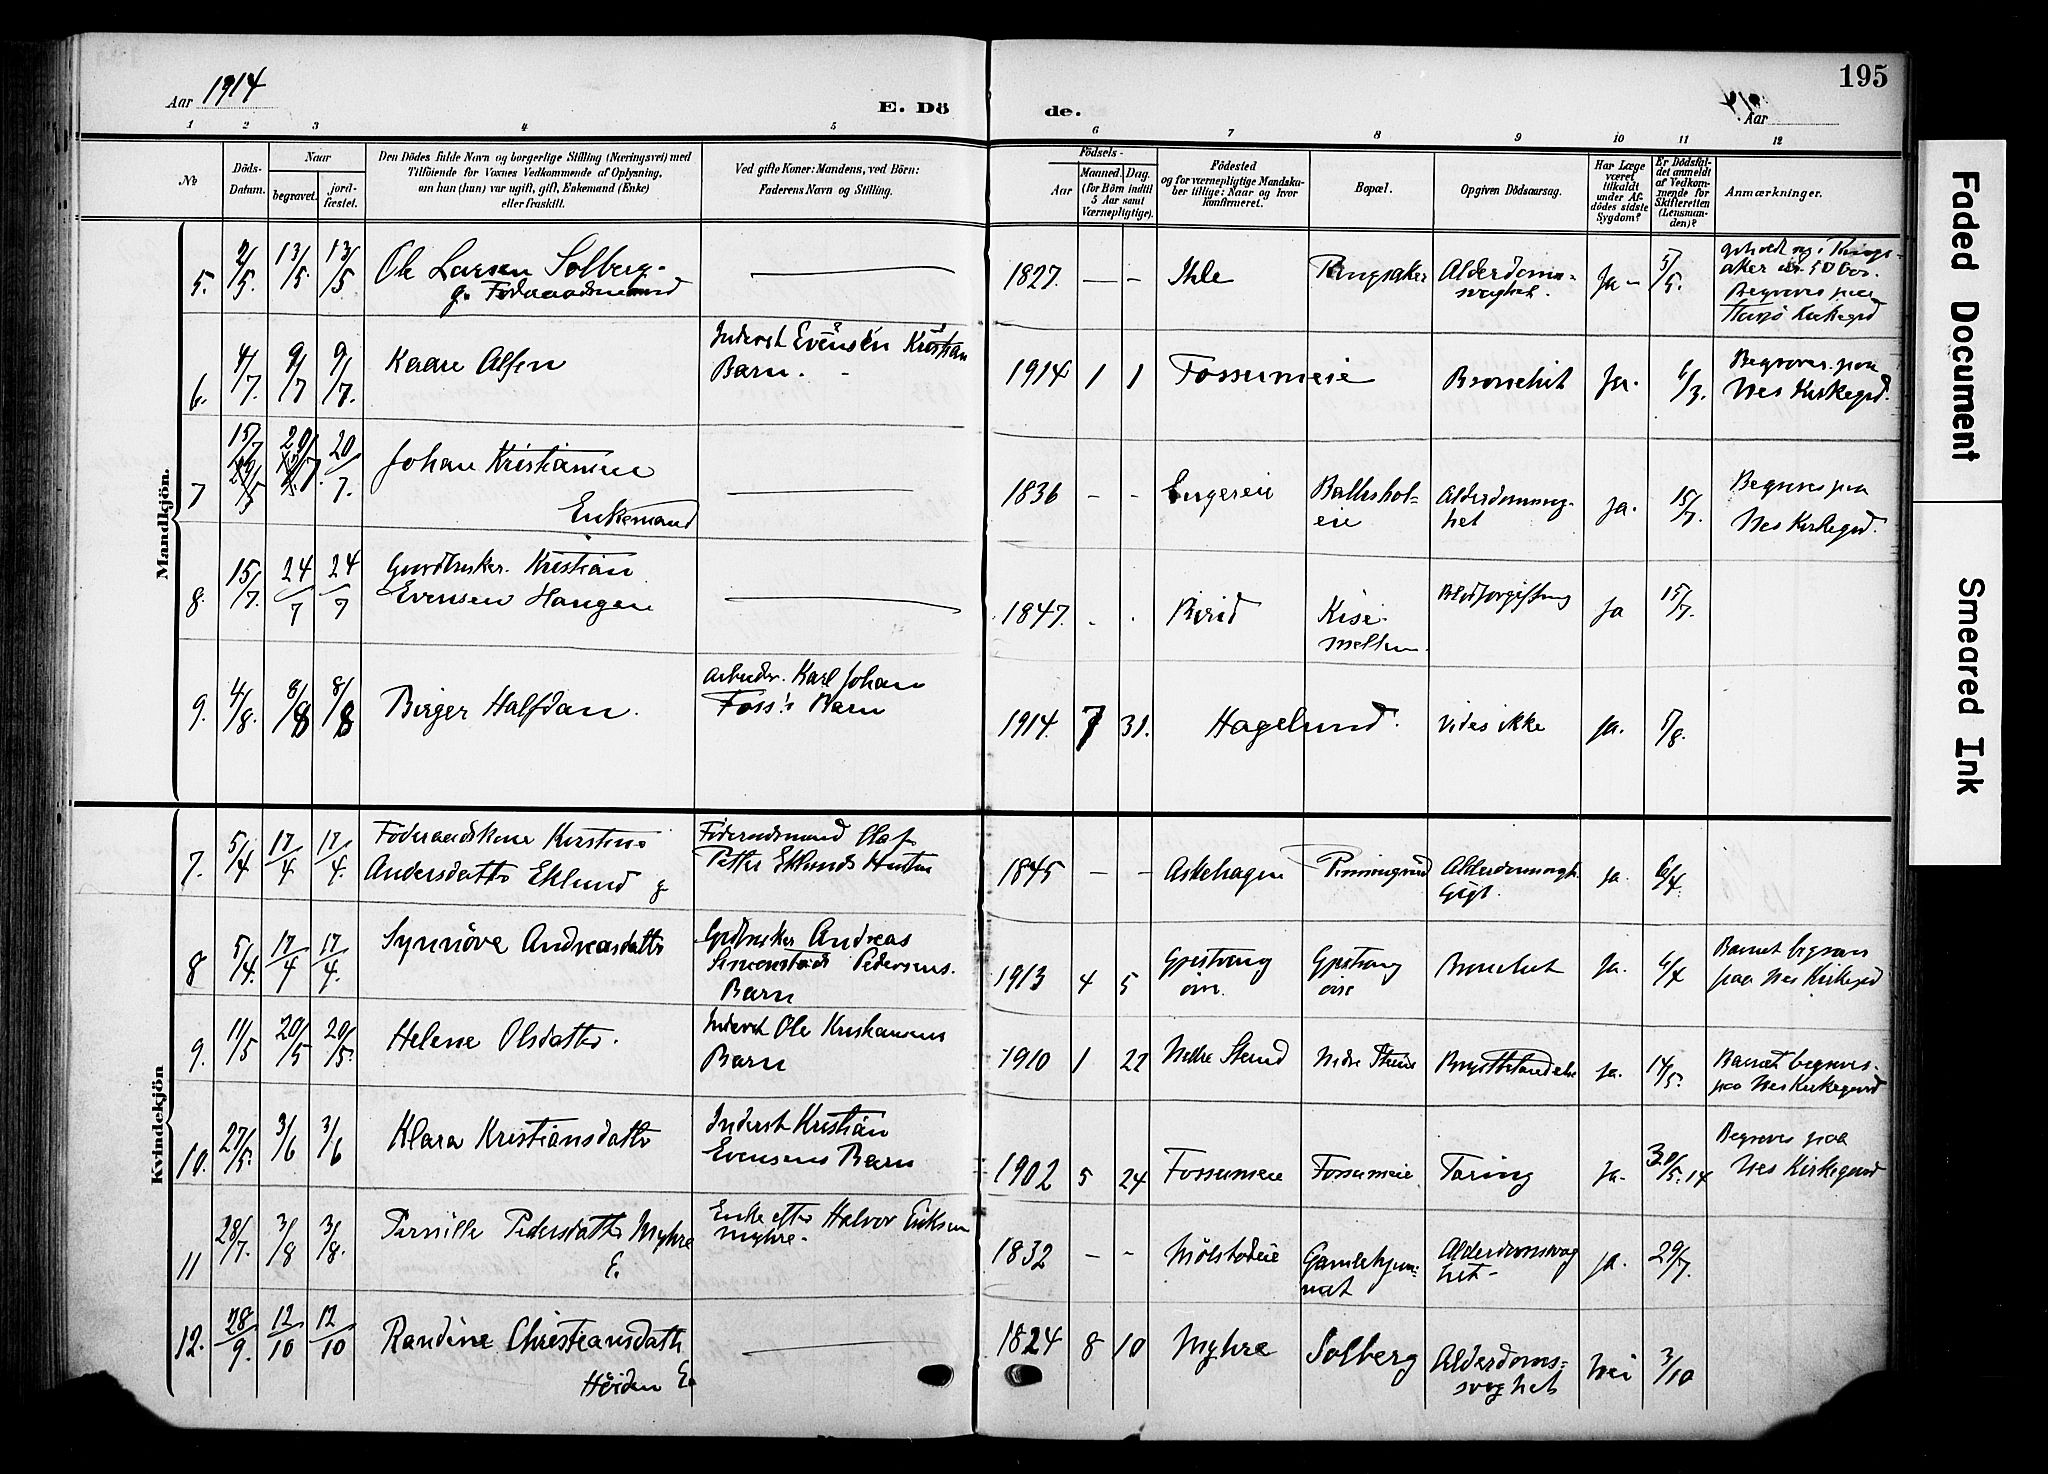 Aar 1914
E. Dö
de.
Aar
195
1 2 3 4 5 6 7 8 9 10 11 12
№
Döds-
Datum.
Naar
begravet.
jord-
fæstet.
Den Dödes fulde Navn og borgerlige Stilling (Næringsvei) med
Tilföiende for Voxnes Vedkommende af Oplysning,
om hun (han) var ugift, gift, Enkemand (Enke)
eller fraskilt.
Ved gifte Koner: Mandens, ved Börn:
Faderens Navn og Stilling.
Födsels-
Aar
Maaned. Dag.
(for Börn indtil
5 Aar samt
Værnepligtige).
Födested
og for værnepligtige Mandska-
ber tillige: Naar og hvor
konfirmeret.
Bopæl.
Opgiven Dödsaarsag.
Har Læge
været
tilkaldt
under Af-
dödes sidste
Sygdom?
Er Dödsfal-
det anmeldt
af Vedkom-
mende for
Skifteretten
(Lensman-
den)?
Anmærkninger.
Mandkjön.
5. 2/5. 13/5. 13/5 Ole Larsen Solberg. 1827. — - Ihle Ringsaker Alderdoms-
svaghet. Ja - 5/5.
g. Föderaadsmand
aker 50 Aar.
Begraves paa
Kirkegrd
6. 4/7. 9/7 9/7. Kaare Alfen Inderst Evensen Kristian
Barn. 1914 1 1 Fossumeie Bronchit Ja. 6/
Begraves paa
Nes Kirkegrd.
7 15/7 20/7. 20/7. Johan Kristiansen
Enkemand 1836 - - Balkshol-
eie Alderdomssvag-
het Ja. 15/7.
Begraves paa
Nes Kirkegrd.
8. 15/7. 24/7 24/7 Gaardbruker. Kristian
Evensen Haugen 1847. . . Birid Kise-
mellem. Blodforgiftning Ja 15/7.
9. 4/8. 8/8 8/8 Birger Halfdan. Arbeider. Karl Johan
Foss's Barn 1914. 7 31. Hagelund. Vides ikke Ja. 5/8.
Kvindekjön
7. 5/4 17/4 17/4. Föderaadskone Kirstine
Andersdatter Eklund g Föderaadsmand Olaf
Petter Eklunds Hustru 1845 - - Askehagen Alderdomssvagh.
Gigt. Ja. 6/4.
8 5/4. 17/4 17/4. Synnöve Andreasdatter Grdbruker Andreas
Simenstad Pedersens
Barn 1913 4 5 Gjestvang
övre. Gjestvang
övre Bronchit Ja. 6/4
Barnet begraves
paa Nes Kirkegrd
9. 11/5 20/5 20/5. Helene Olsdatter. Inderst Ole Kristiansens
Barn 1910 1 22 Nedre Brystbetændelse Ja. 14/5.
Barnet begraves
paa Nes Kirkegaard
10. 27/5. 3/6 3/6 Klara Kristiansdatter Inderst Kristian
Evensens Barn 1902 5 24 Fossumeie Fossumeie. Tæring Ja. 30/5. 14
Begraves paa
Nes Kirkegaard
11 28/7. 3/8 3/8. Pernille Pedersdatter Myhre
E. Enke efter Halvor Eriksen
Myhre. 1832 - - Gamlehjem-
met Alderdomssvag
het- Ja. 29/7.
12. 28/9. 12/10 12/10 Randine Christiansdatter
E. 1824 8 10 Myhre Solberg Alderdoms-
svaghet Nei 3/10
Faded Document
Smeared Ink